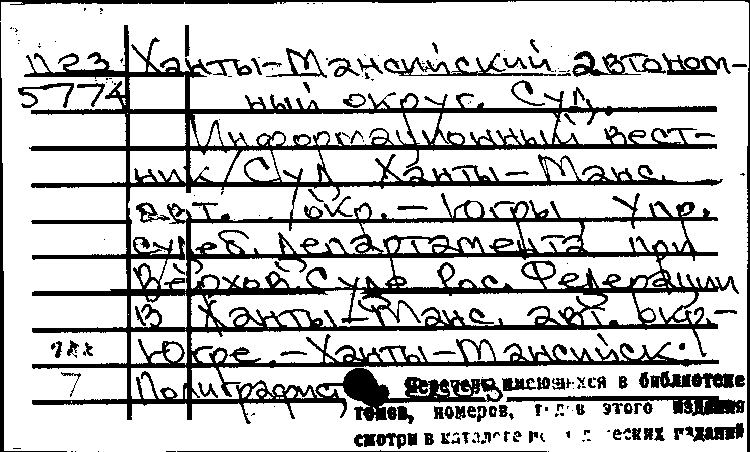 П23 Ханты-Мансийский автоном-
5774 ный округ. Суд.
Информационный вест-
ник/Суд Ханты-Манс.
авт. окр. - Югры, Упр.
судеб. департамента при
Верхов. Суде Рос. Федерации
в Ханты-Манс. авт. окр.-
Югре. - Ханты-Мансийск:
7 Полиграфист,
Перечень имеющихся в библиотеке
томов, номеров, годов этого издания
смотри в каталоге периодических изданий